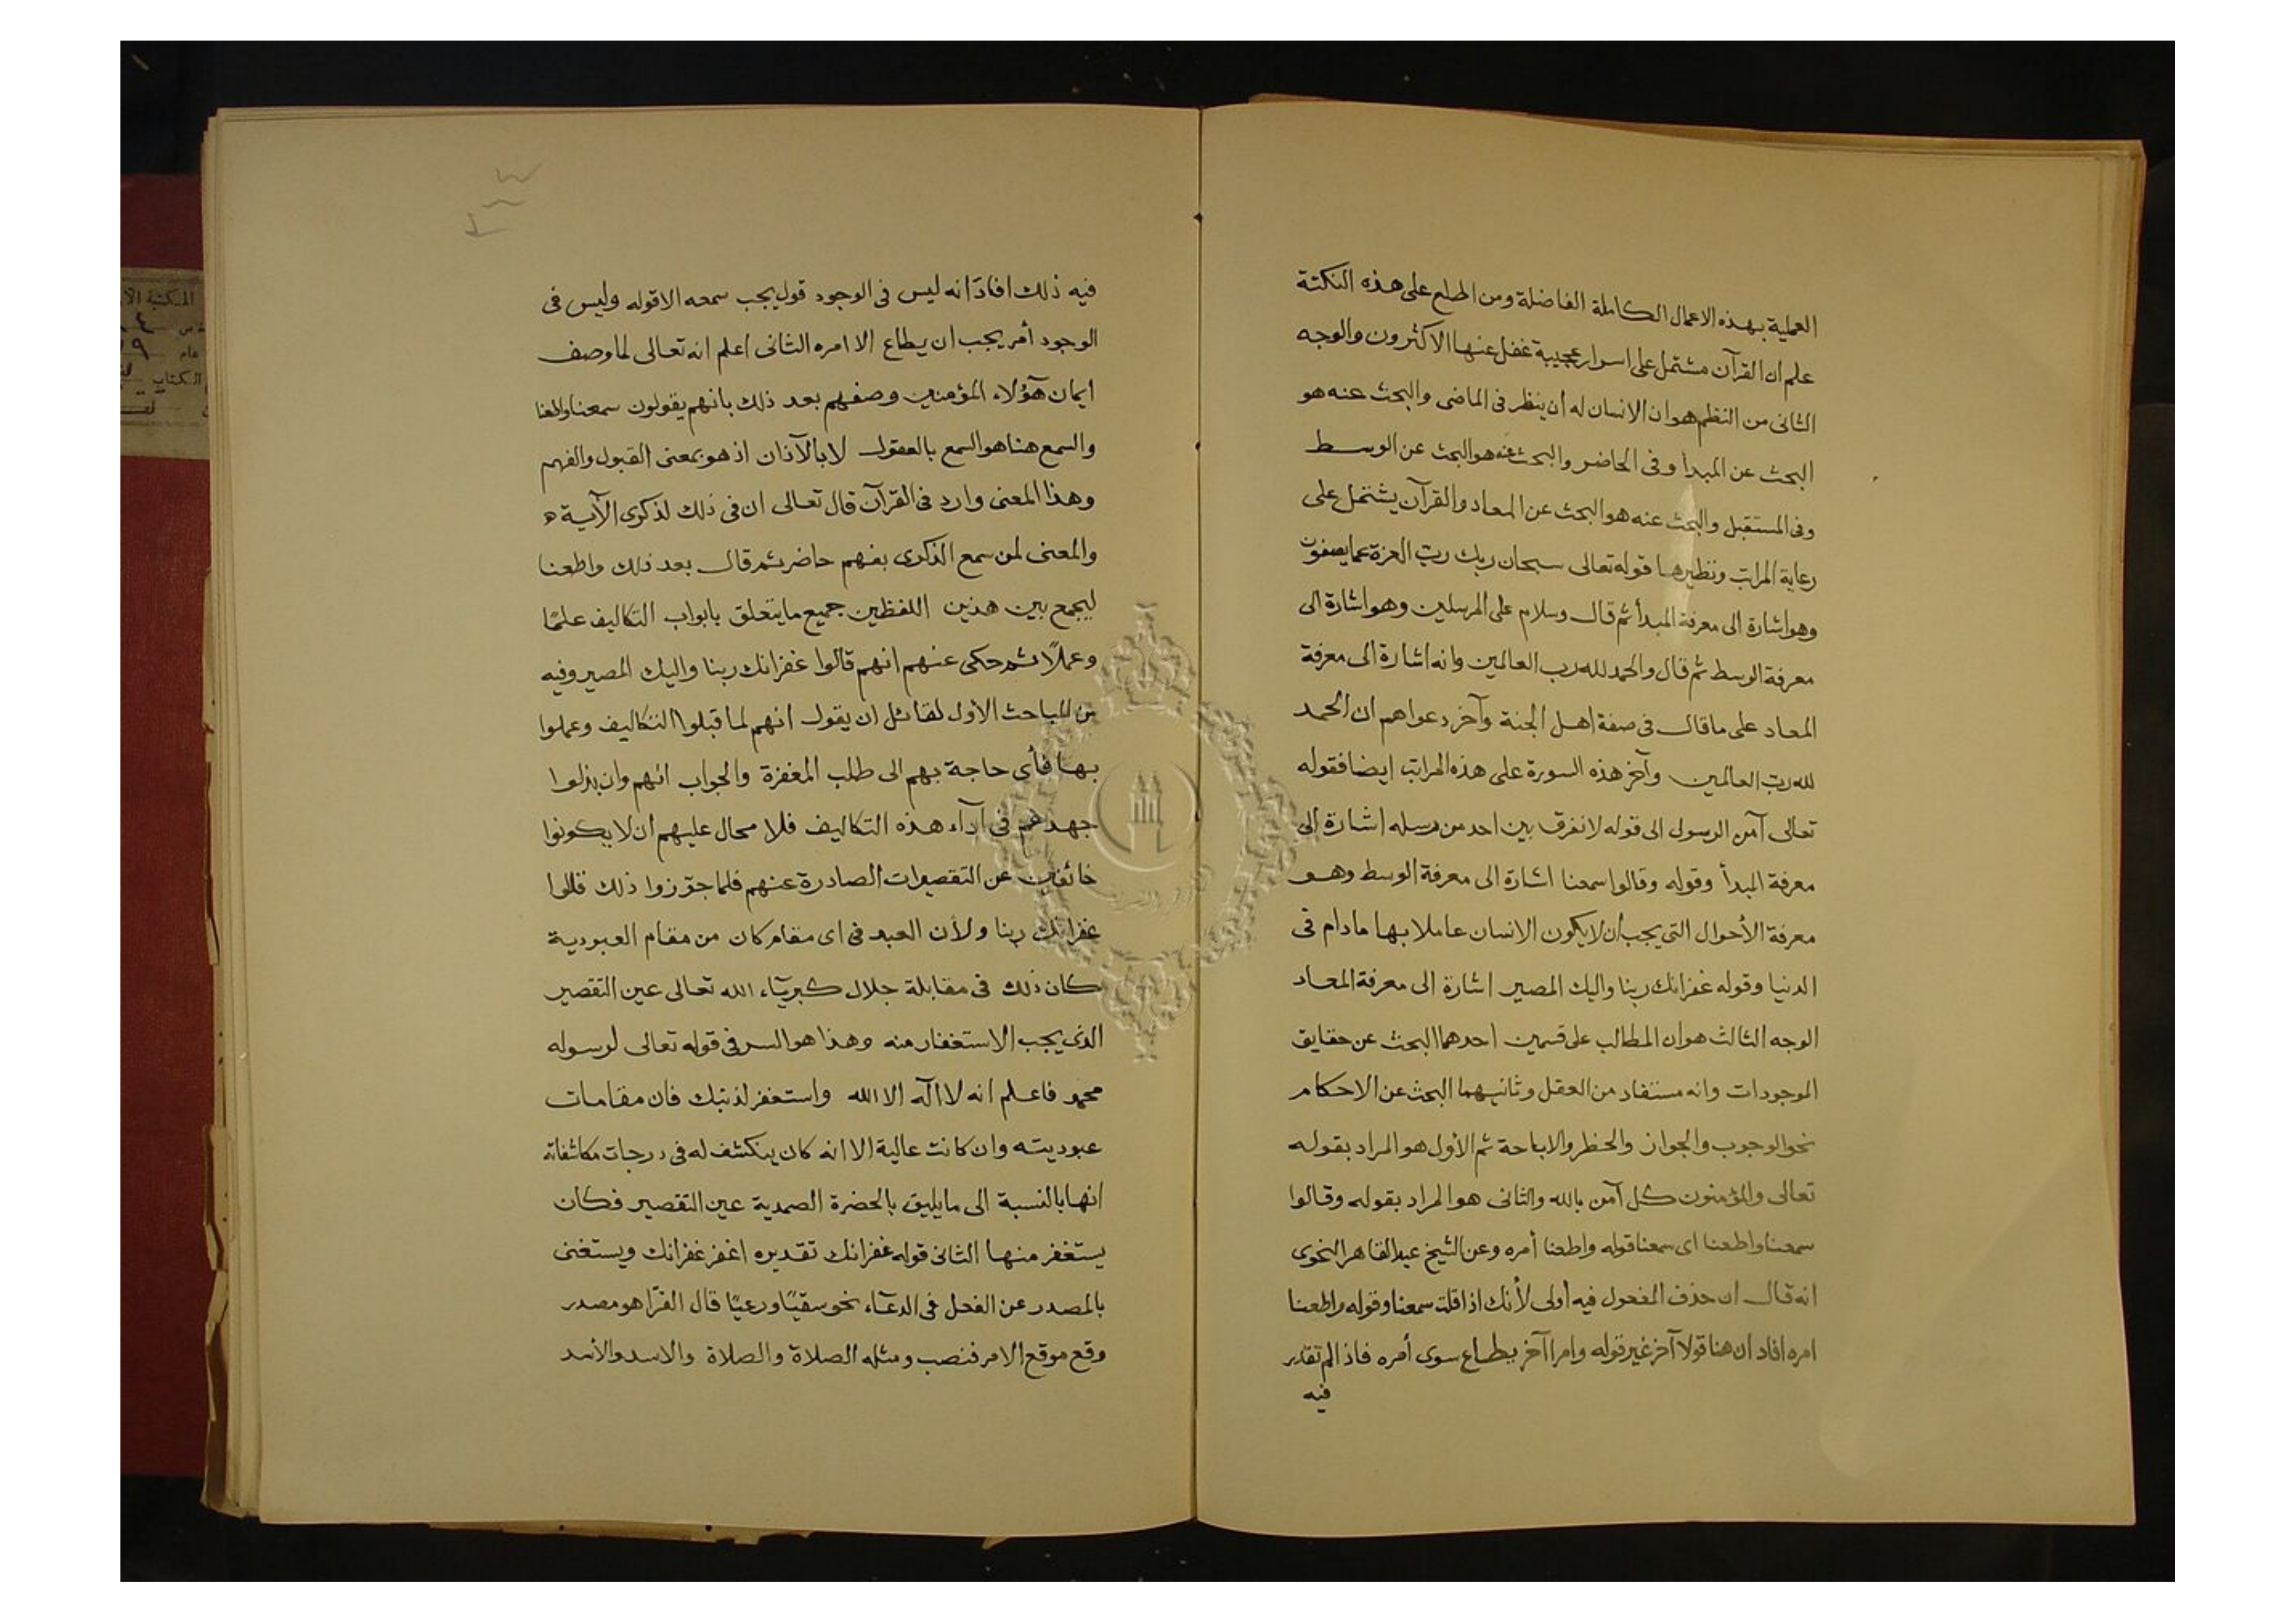 العملية بهذه الاعمال الكاملة الفاضلة ومن اطلع على هذه النكتة
علم ان القرآن مشتمل على اسرار عجيبة غفل عنها الاكثرون والوجه
الثانى من النظم هو ان الانسان له أن ينظر فى الماضى والبحث عنه هو
البحث عن المبدأ وفى الحاضر والبحث عنه هو البحث عن الوسط
وفى المستقبل والبحث عنه هو البحث عن المعاد والقرآن يشتمل على
رعاية المراتب ونظيرها قوله تعالى سبحان ربك ربّ العزة عما يصفون
وهو اشارة الى معرفة المبدأ ثم قال وسلام على المرسلين وهو اشارة الى
معرفة الوسط ثم قال والحمد لله رب العالمين وانه اشارة الى معرفة
المعاد على ما قال فى صفة اهل الجنة وآخر دعواهم ان الحمد
لله ربّ العالمين وآخر هذه السورة على هذه المراتب ايضا فقوله
تعالى آمن الرسول الى قوله لا نفرق بين احد من رسله اشارة الى
معرفة المبدأ وقوله وقالوا سمعنا اشارة الى معرفة الوسط وهو
معرفة الأحوال التى يجب أن لا يكون الانسان عاملا بها ما دام فى
الدنيا وقوله غفرانك ربنا واليك المصير اشارة الى معرفة المعاد
الوجه الثالث هو ان المطالب على قسمين احدهما البحث عن حقايق
الموجودات وانه مستفاد من العقل وثانيهما البحث عن الاحكام
نحو الوجوب والجواز والحظر والاباحة ثم الأول هو المراد بقوله
تعالى والمؤمنون كل آمن بالله والثانى هو المراد بقوله وقالوا
سمعنا واطعنا اى سمعنا قوله واطعنا أمره وعن الشيخ عبد القاهر النحوى
انه قال ان حذف المفعول فيه أولى لأنك اذا قلت سمعنا وقوله واطعنا
امره افاد ان هنا قولا آخر غير قوله وامرا آخر يطاع سوى أمره فاذا لم تقدر
فيه
فيه ذلك افاد انه ليس فى الوجود قول يجب سمعه الا قوله وليس فى
الوجود أمر يجب ان يطاع الا امره الثانى اعلم انه تعالى لما وصف
ايمان هؤلاء المؤمنين وصفهم بعد ذلك بانهم يقولون سمعنا واطعنا
والسمع هنا هو السمع بالعقول لا بالآذان اذ هو بمعنى القبول والفهم
وهذا المعنى وارد فى القرآن قال تعالى ان فى ذلك لذكرى الآية
والمعنى لمن سمع الذكرى بفهم حاضر ثم قال بعد ذلك واطعنا
ليجمع بين هذين اللفظين جميع ما يتعلق بابواب التكاليف علمًا
وعملًا ثم حكى عنهم انهم قالوا غفرانك ربنا واليك المصير وفيه
من المباحث الأول لقائل ان يقول انهم لما قبلوا التكاليف وعملوا
بها فأى حاجة بهم الى طلب المغفرة والجواب انهم وان بذلوا
جهدهم فى ادآء هذه التكاليف فلا محال عليهم ان لا يكونوا
خائفين عن التقصيرات الصادرة عنهم فلما جوّزوا ذلك قالوا
غفرانك ربنا ولأن العبد فى اى مقام كان من مقام العبودية
كان ذلك فى مقابلة جلال كبريآء الله تعالى عين التقصير
الذى يجب الاستغفار منه وهذا هو السر فى قوله تعالى لرسوله
محمد فاعلم انه لا اله الا الله واستغفر لذنبك فان مقامات
عبوديته وان كانت عالية الا انه كان ينكشف له فى درجات مكاشفاته
انها بالنسبة الى ما يليق بالحضرة الصمدية عين التقصير فكان
يستغفر منها الثانى قوله غفرانك تقديره اغفر غفرانك ويستغنى
بالمصدر عن الفعل فى الدعآء نحو سقيًا ورعيًا قال الفرّا هو مصدر
وقع موقع الامر فنصب ومثله الصلاة والصلاة والاسد والأسد